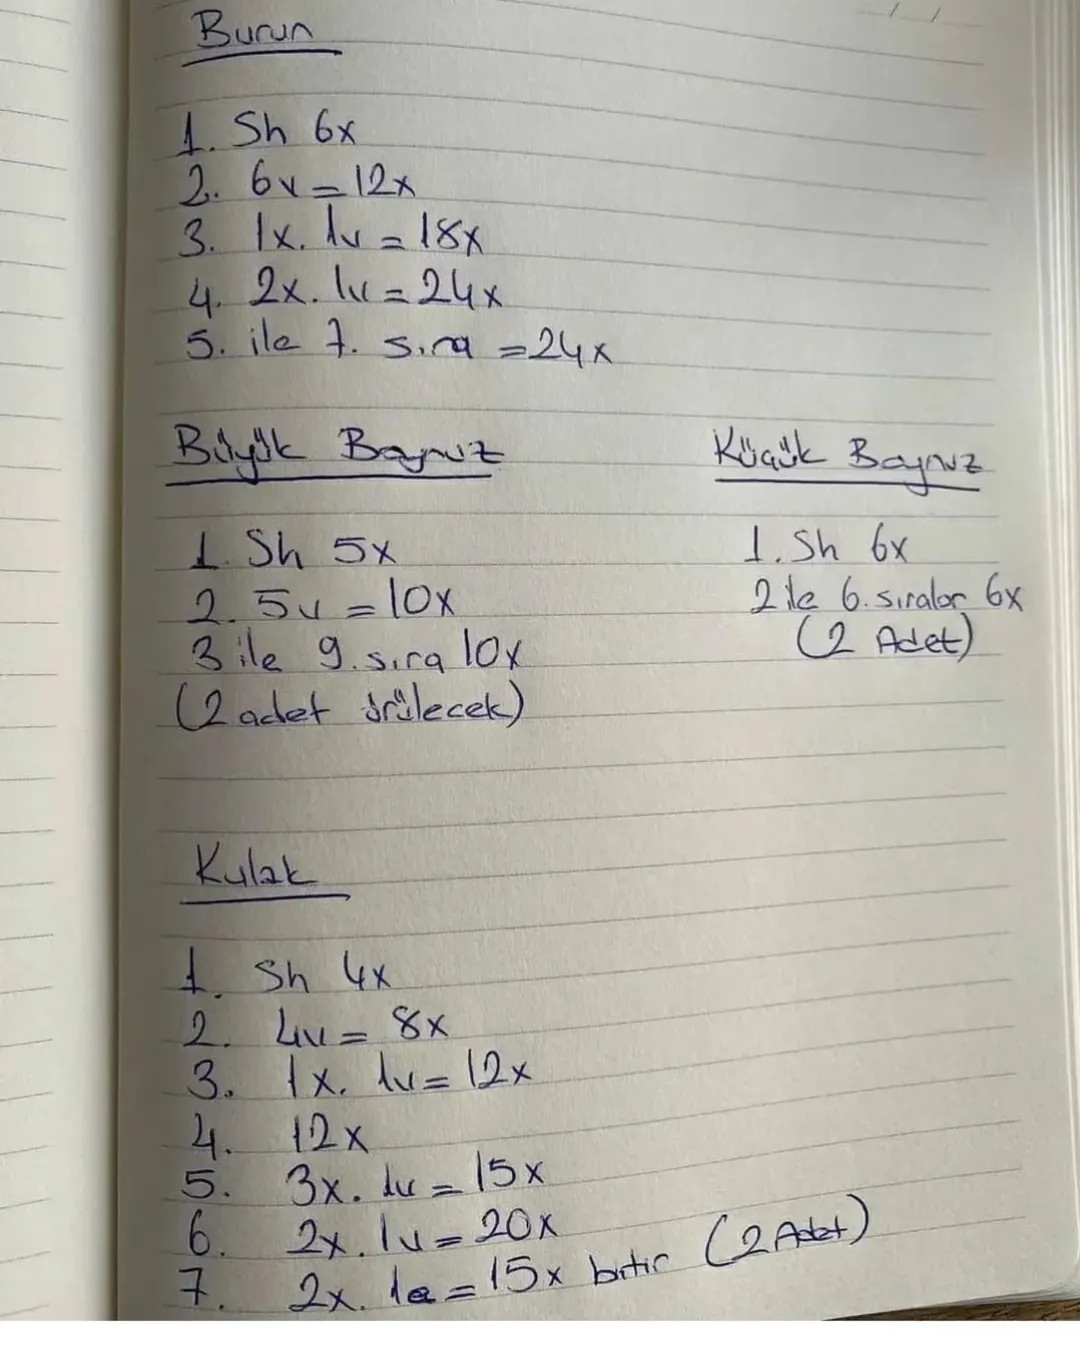 Burun
1. Sh 6x
2. 6v=12x
3. 1x. 1v=18x
4. 2x. 1v=24x
5. ile 7. sıra =24x
Büyük Boynuz
1. Sh 5x
2. 5v=10x
3 ile 9. sıra 10x
(2 adet örülecek)
Küçük Boynuz
1. Sh 6x
2 ile 6. sıralar 6x
(2 Adet)
Kulak
1. Sh 4x
2. 4v= 8x
3. 1x. 1v=12x
4. 12x
5. 3x. 1v=15x
6. 2x. 1v=20x
7. 2x. 1e=15x bitir (2 Adet)